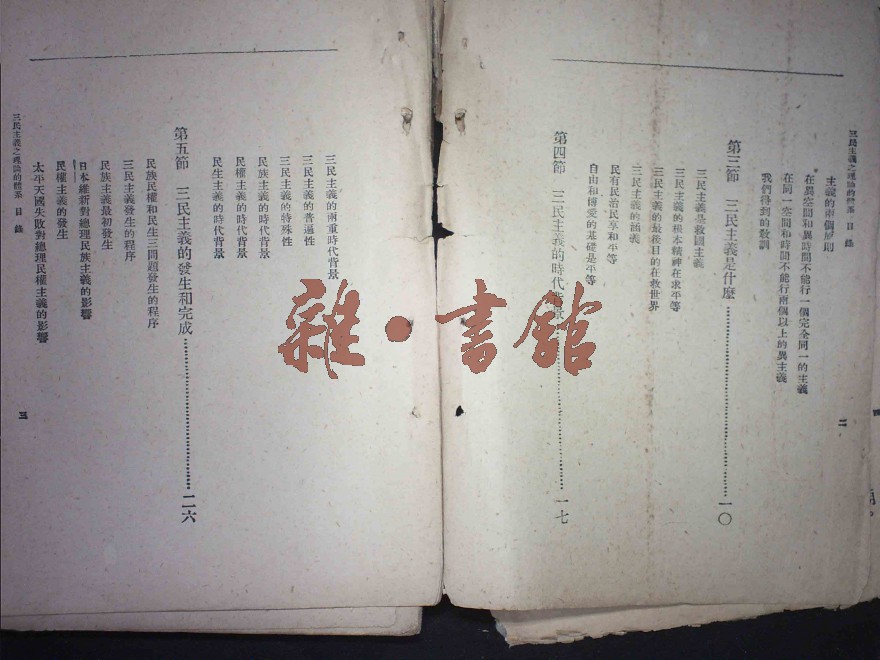 三民主義之理論的體系 目錄
主義的兩個原則
在異空間和異時間不能行一個完全同一的主義
在同一空間和時間不能行兩個以上的異主義
我們得到的教訓
第三節 三民主義是什麼…………一〇
三民主義是救國主義
三民主義的根本精神在求平等
三民主義的最後目的在救世界
三民主義的涵義
民有民治民享和平等
自由和博愛的基礎是平等
第四節 三民主義的時代背景…………一七
二
三民主義的兩重時代背景
三民主義的普遍性
三民主義的特殊性
民族主義的時代背景
民權主義的時代背景
民生主義的時代背景
第五節 三民主義的發生和完成…………二六
民族民權和民生三問題發生的程序
三民主義發生的程序
民族主義最初發生
日本維新對總理民族主義的影響
民權主義的發生
太平天國失敗對總理民權主義的影響
三民主義之理論的體系 目錄
三
雜·書館